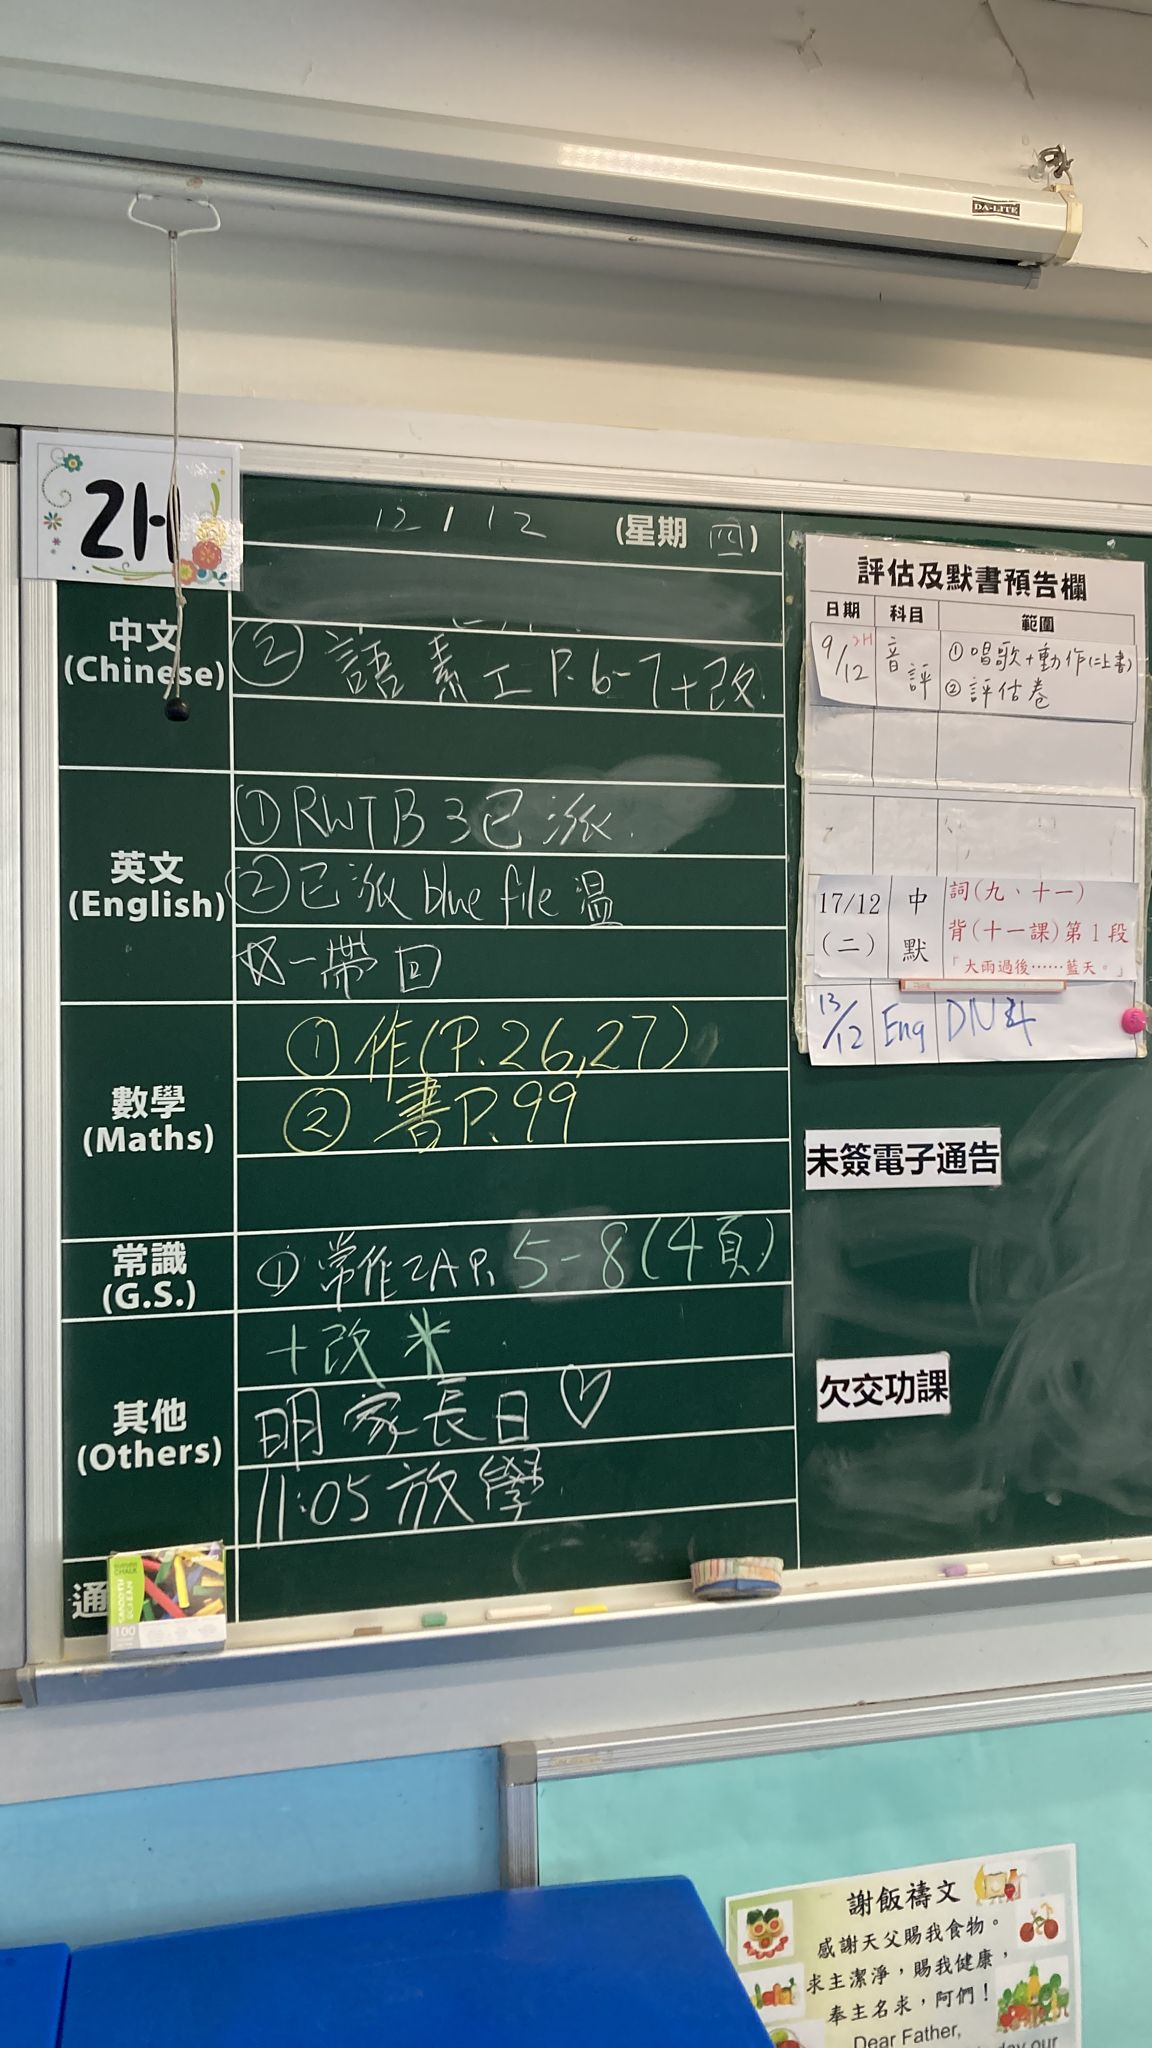 DA-LITE
2H
12 / 12 (星期 四)
中文
(Chinese)
② 語素工 P.6-7+改
英文
(English)
① RWTB 3 已派
② 已派 blue file 溫
☆-帶回
數學
(Maths)
① 作(P.26,27)
② 書P.99
常識
(G.S.)
① 常作2A P. 5-8(4頁)
+改
其他
(Others)
明家長日♡
11:05 放學
通
100
評估及默書預告欄
日期 科目 範圍
9/12 2H 音評 ①唱歌+動作(上書)
②評估卷
17/12 (二) 中默 詞(九、十一)
背(十一課)第1段
「大雨過後⋯⋯藍天。」
13/12 Eng DN4
未簽電子通告
欠交功課
謝飯禱文
感謝天父賜我食物。
求主潔淨，賜我健康，
奉主名求，阿們！
Dear Father,
our